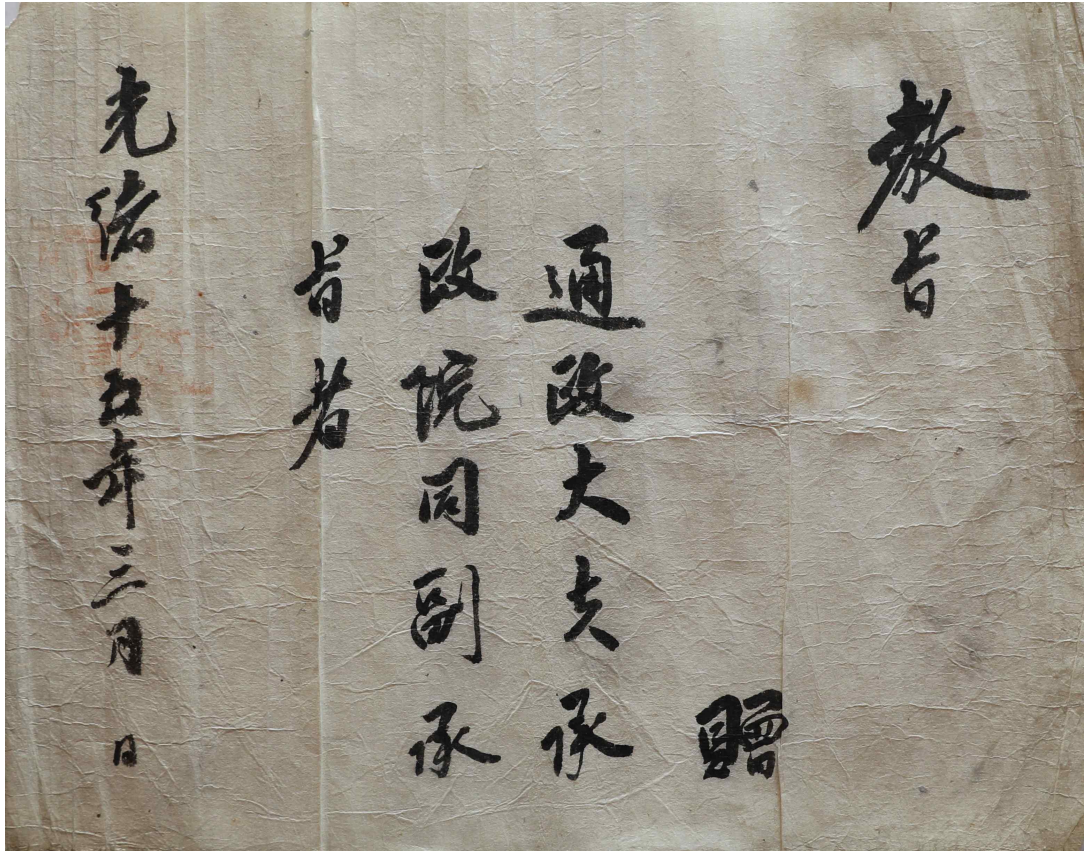 教旨
贈
通政大夫承
政院同副承
旨者
光緖十五年三月 日